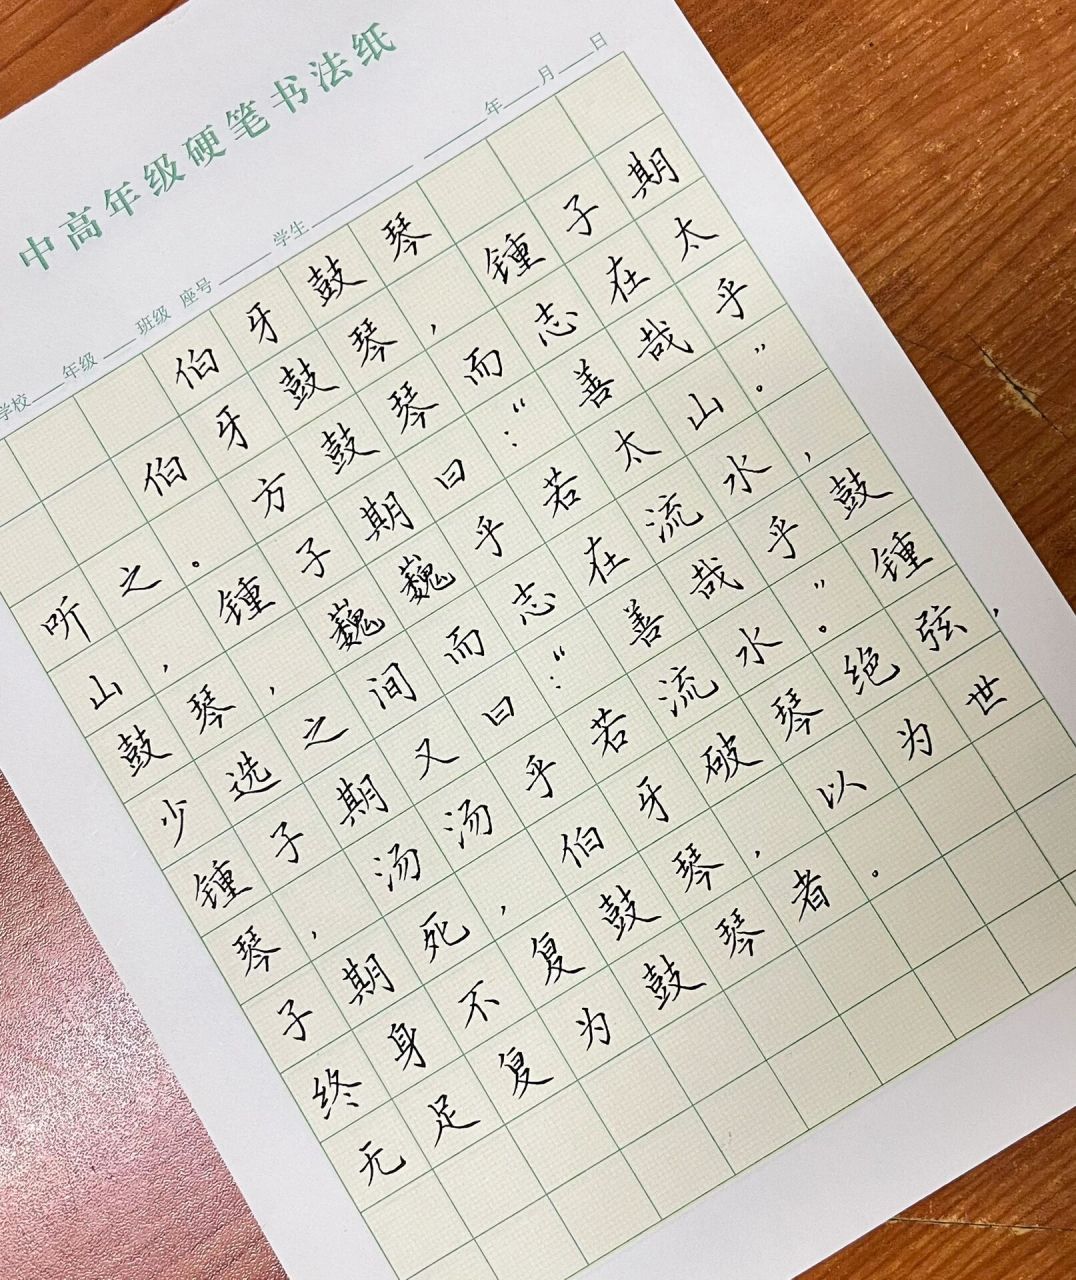 中高年级硬笔书法纸
学校____年级____班级 座号____学生________ ____年____月____日
伯牙鼓琴
伯牙鼓琴，鍾子期
听之。方鼓琴而志在太
山，鍾子期曰：“善哉乎
鼓琴，巍巍乎若太山。”
少选之间而志在流水，
鍾子期又曰：“善哉乎鼓
琴，汤汤乎若流水。”鍾
子期死，伯牙破琴绝弦，
终身不复鼓琴，以为世
无足复为鼓琴者。